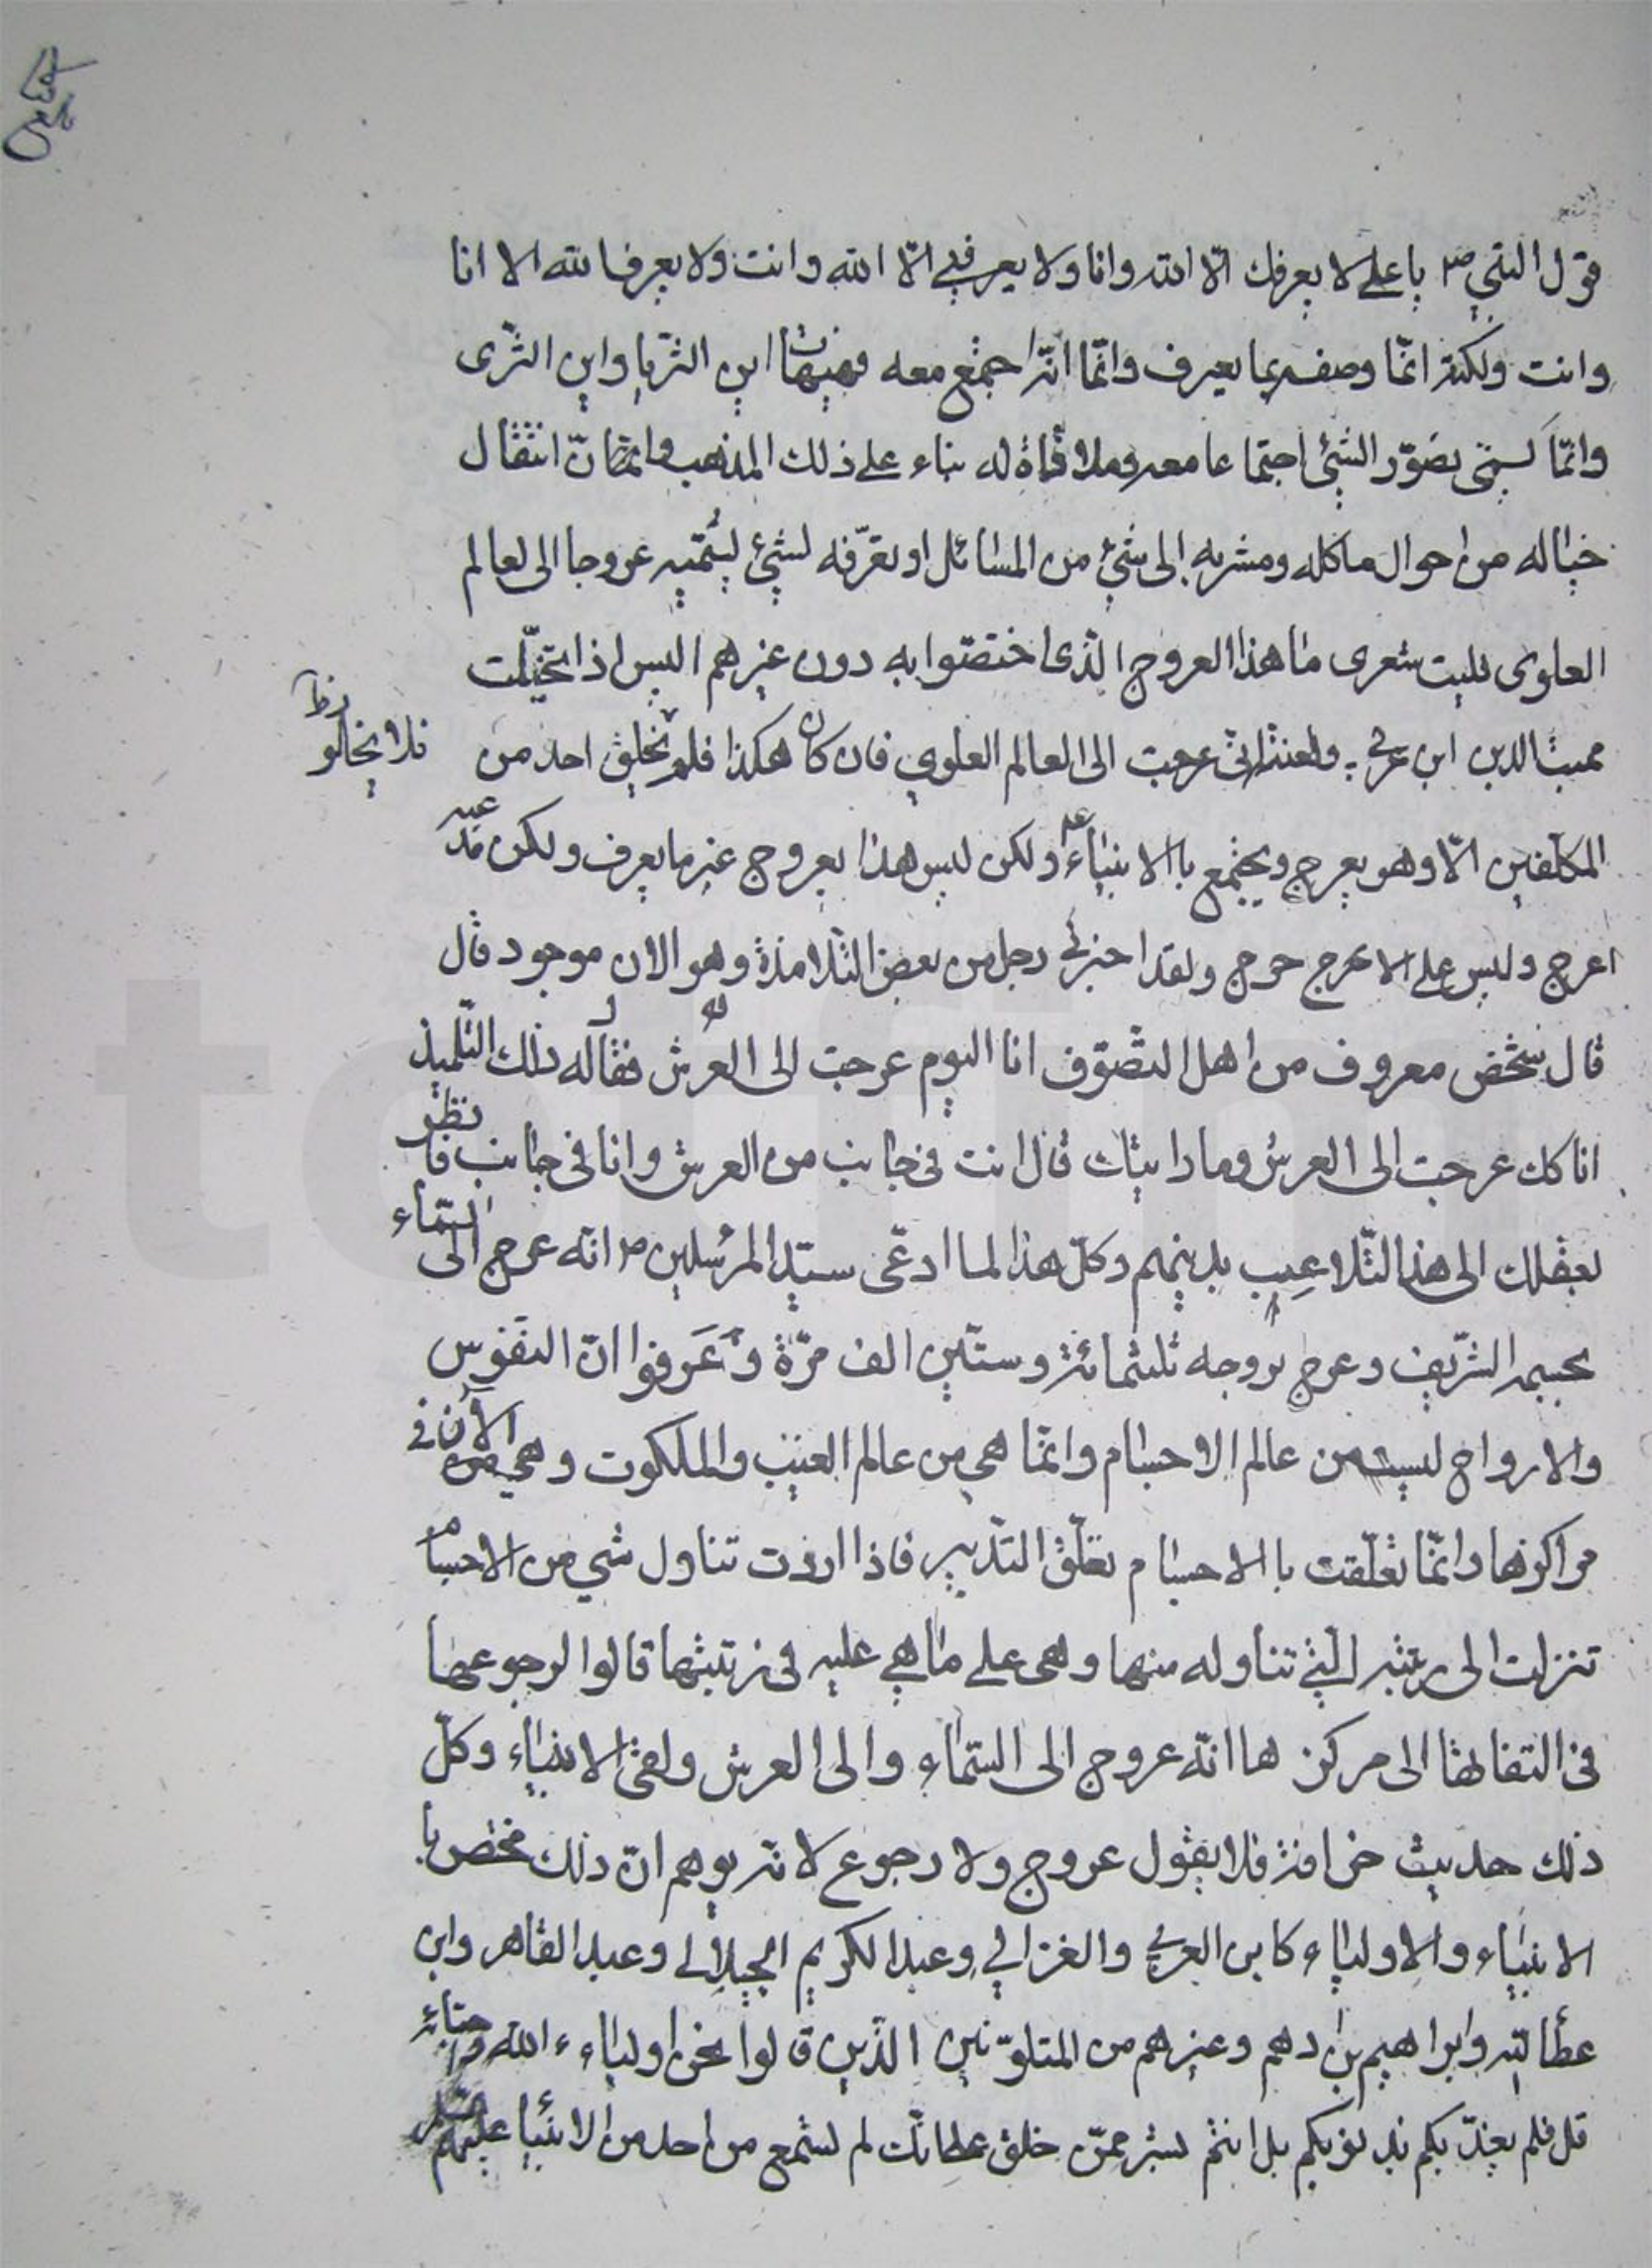 قول النبي ص يا علي لا يعرفك الّا الله وانا ولا يعرفني الّا الله وانت ولا يعرف الله الا انا
وانت ولكنه انّما وصفه بما يعرف وانّما انّه اجتمع معه فهيهات اين الثريا واين الثّرى
وانّما يسمّى تصوّر الشئ اجتماعا معه وملاقاة له بناء على ذلك المذهب وانّما انّ انتقال
خياله من احوال ماكله ومشربه الى شئ من المسائل او تعرّفه لشئ يسمّيه عروجا الى العالم
العلوى فليت شعرى ما هذا العروج الّذى اختصّوا به دون غيرهم اليس اذا تخيّلت
مميت الدين ابن عربي عرجت الى العالم العلوي فان كان هكذا فلم يخلق احد من
فلا يخلو
المكلّفين الّا وهو يعرج ويجتمع باالانبياء ع ولكن ليس هذا بعروج غير ما يعرف ولكن
اعرج وليس على الاعرج حرج ولقد اخبرني رجل من بعض التّلامذة وهو الان موجود قال
قال شخص معروف من اهل التصّوف انا اليوم عرجت الى العرش فقال له ذلك التّلميذ
انا كك عرجت الى العرش وما رايتك قال انت في جانب من العرش وانا في جانب فانظر
بعقلك الى هذا التّلاعب بدينهم وكلّ هذا لما ادعّى سيّد المرسلين ص انّه عرج الى السّماء
بجسمه الشّريف وعرج بروحه ثلثمائة وستّين الف مرّة وعَرفوا انّ النفوس
والارواح ليست من عالم الاجسام وانّما هي من عالم الغيب والملكوت وهي الآن في
مراكزها وانّما تعلّقت باالاجسام تعلّق التّدبير فاذا اردت تناول شي من الاجسام
تنزلت الى رتبته الّتي تناوله منها وهى على ما هي عليه في رتبتها قالوا لرجوعها
في التفاتها الى مركزها انّه عروج الى السّماء والى العرش ولقى الانبياء وكلّ
ذلك حديث خرافة فلا يقول عروج ولا رجوع لانّه يوهم انّ ذلك مختص با
الانبياء والاولياء كابن العربي والغزالي وعبد الكريم الجيلاني وعبد القاهر وابن
عطا الله وابراهيم بن ادهم وغيرهم من المتلوّنين الّذين قالوا نحن اولياء الله واحبّائه
قل فلم يعذّبكم بذنوبكم بل انتم بشر ممّن خلق لم تسمع من احد من الانبيا عليهم